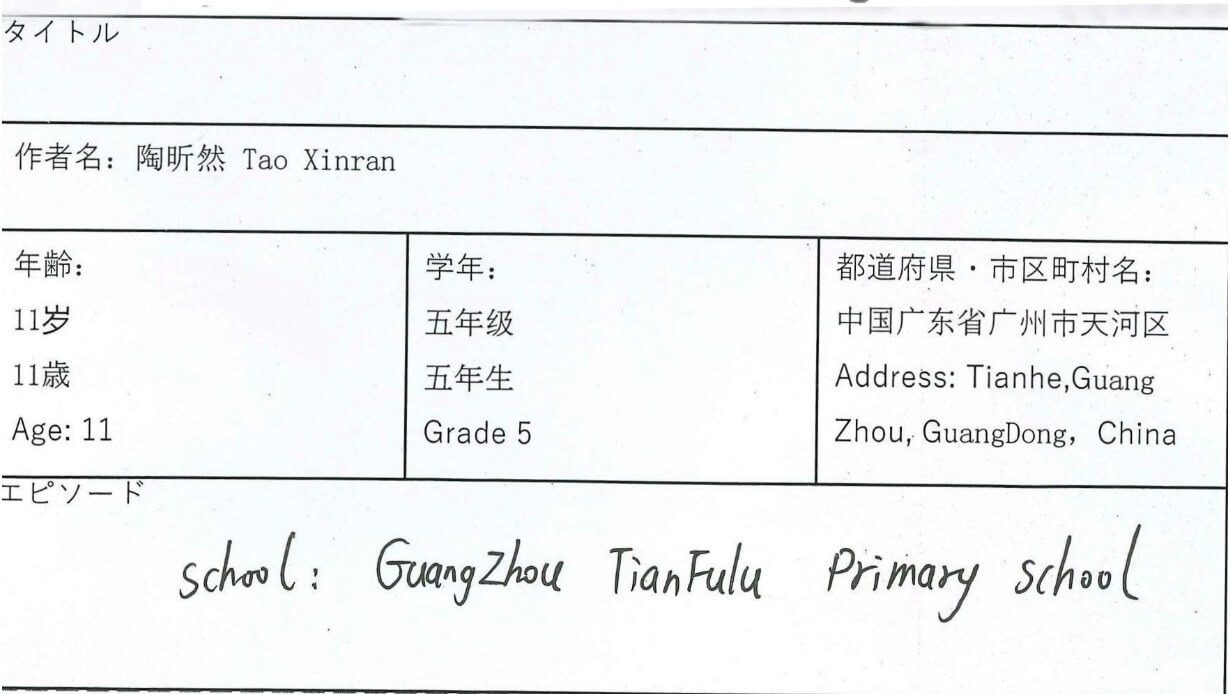 タイトル
作者名：陶昕然 Tao Xinran
年齢：
11岁
11歳
Age: 11
学年：
五年级
五年生
Grade 5
都道府県・市区町村名：
中国广东省广州市天河区
Address: Tianhe,Guang
Zhou, GuangDong，China
エピソード
school: GuangZhou TianFulu Primary school